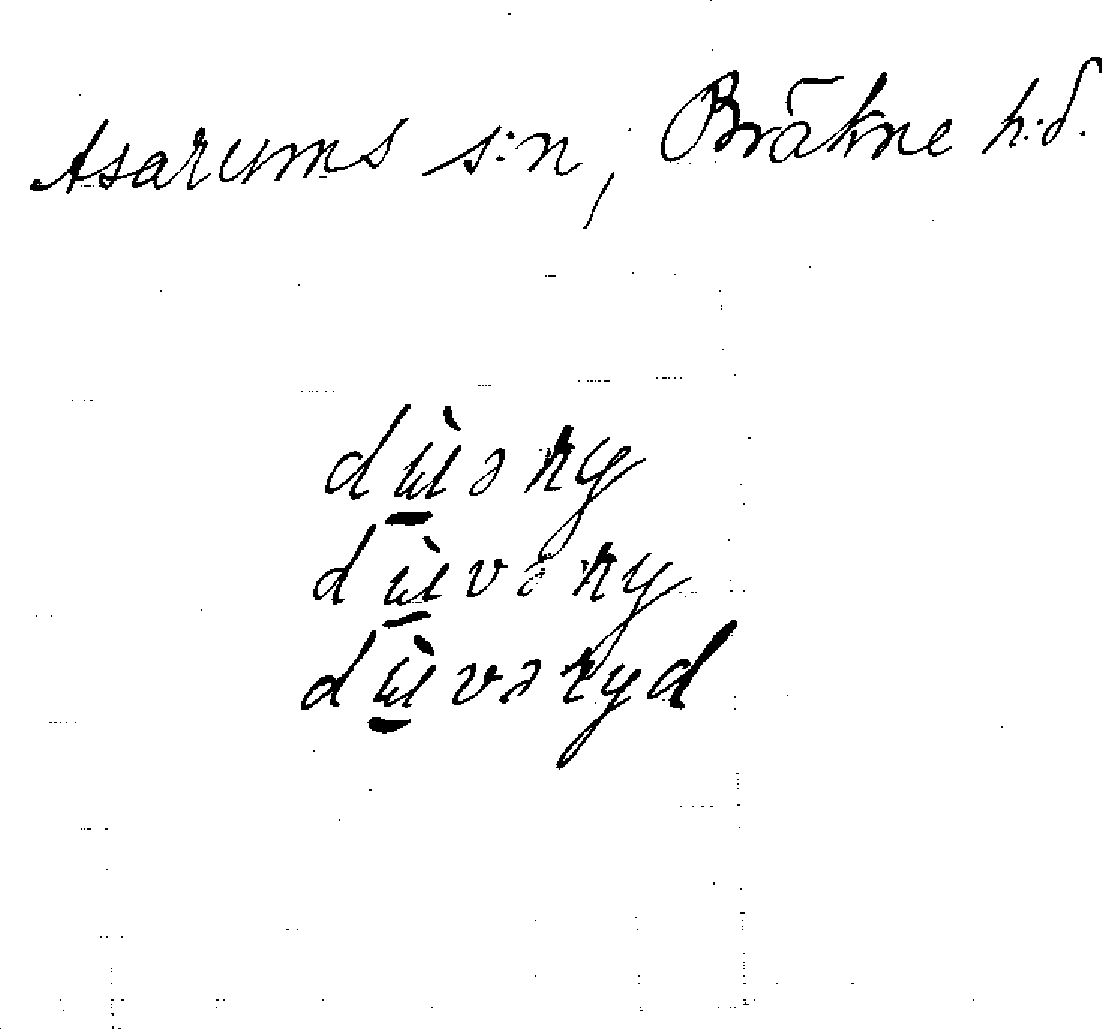 Asarums s:n, Bräkne h:d.
dɯ̲̀əry
dɯ̲̀vəry
dɯ̲̀vəryd